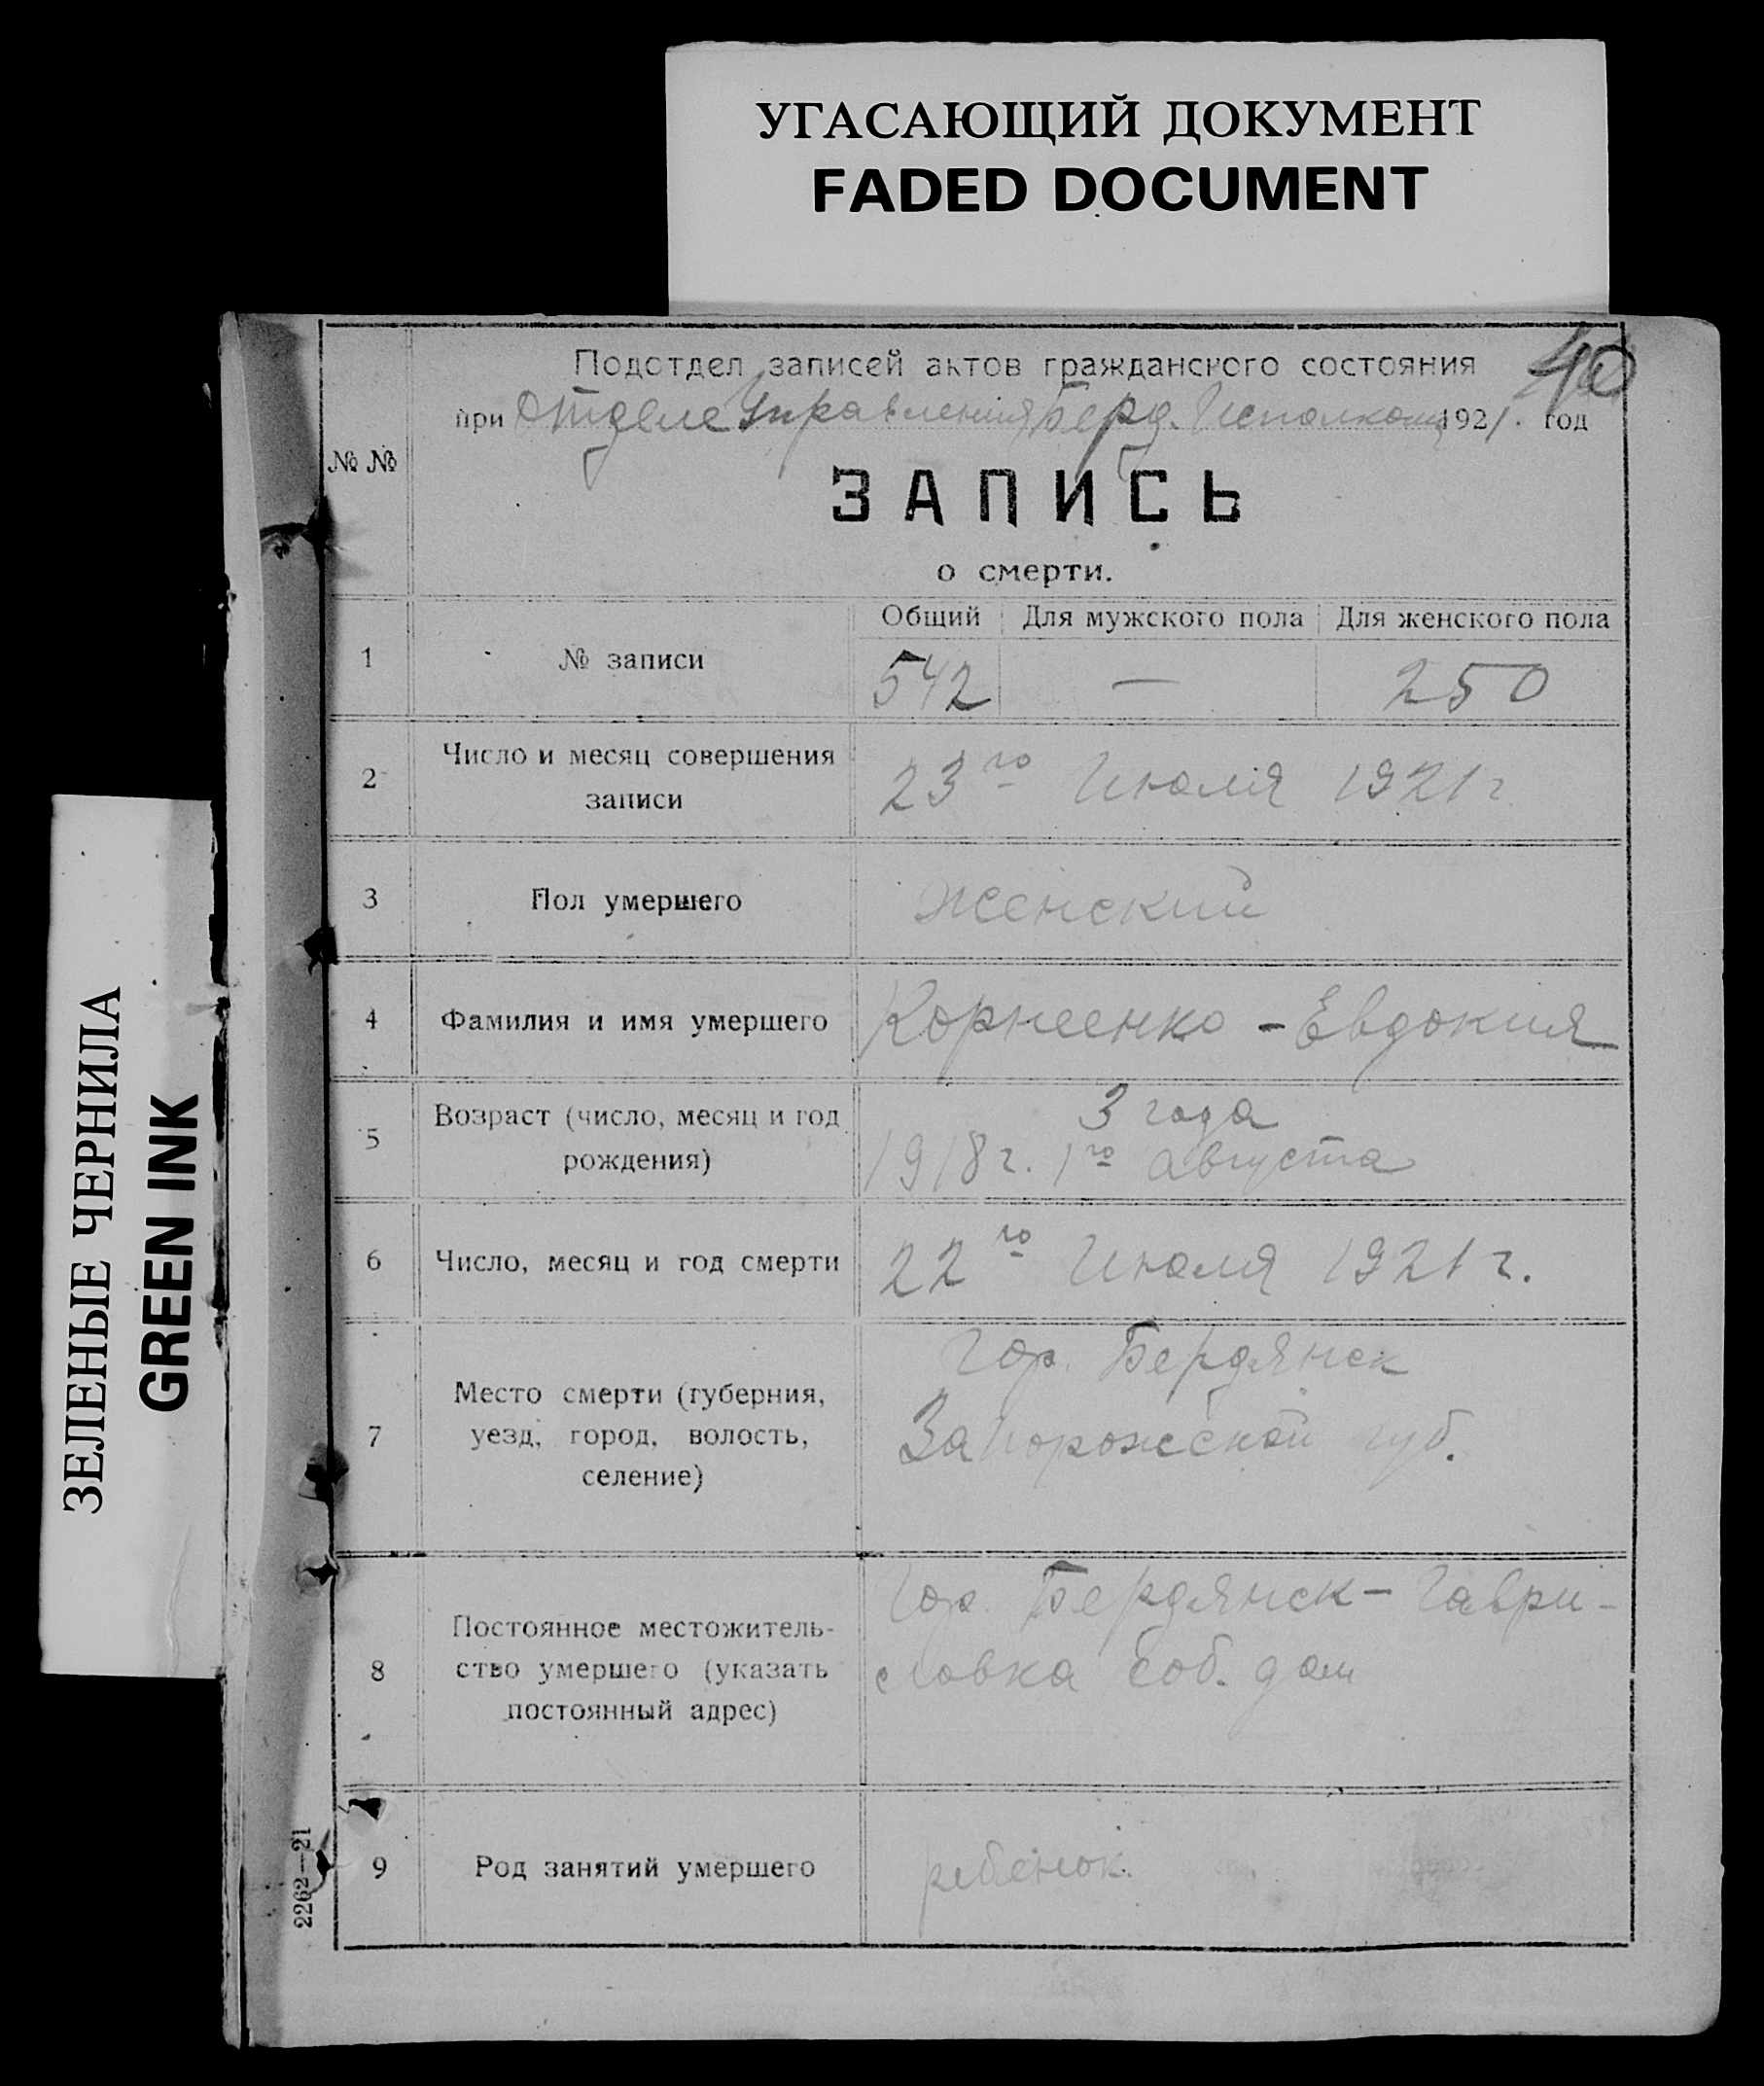 УГАСАЮЩИЙ ДОКУМЕНТ
FADED DOCUMENT
ЗЕЛЕНЫЕ ЧЕРНИЛА
GREEN INK
40
Подотдел записей актов гражданского состояния
при Отделе Управления Берд. Исполкома 1921. год
№ №
ЗАПИСЬ
о смерти.
Общий Для мужского пола Для женского пола
1 № записи 542 — 250
2 Число и месяц совершения
записи
23го Июля 1921 г.
3 Пол умершего женский
4 Фамилия и имя умершего Корнеенко - Евдокия
5 Возраст (число, месяц и год
рождения)
3 года
1918 г. 1го августа
6 Число, месяц и год смерти 22го Июля 1921 г.
7 Место смерти (губерния,
уезд, город, волость,
селение)
Гор. Бердянск
Запорожской губ.
8 Постоянное местожитель-
ство умершего (указать
постоянный адрес)
Гор. Бердянск - Гаври-
словка Соб. дом
9 Род занятий умершего ребенок.
2262—21